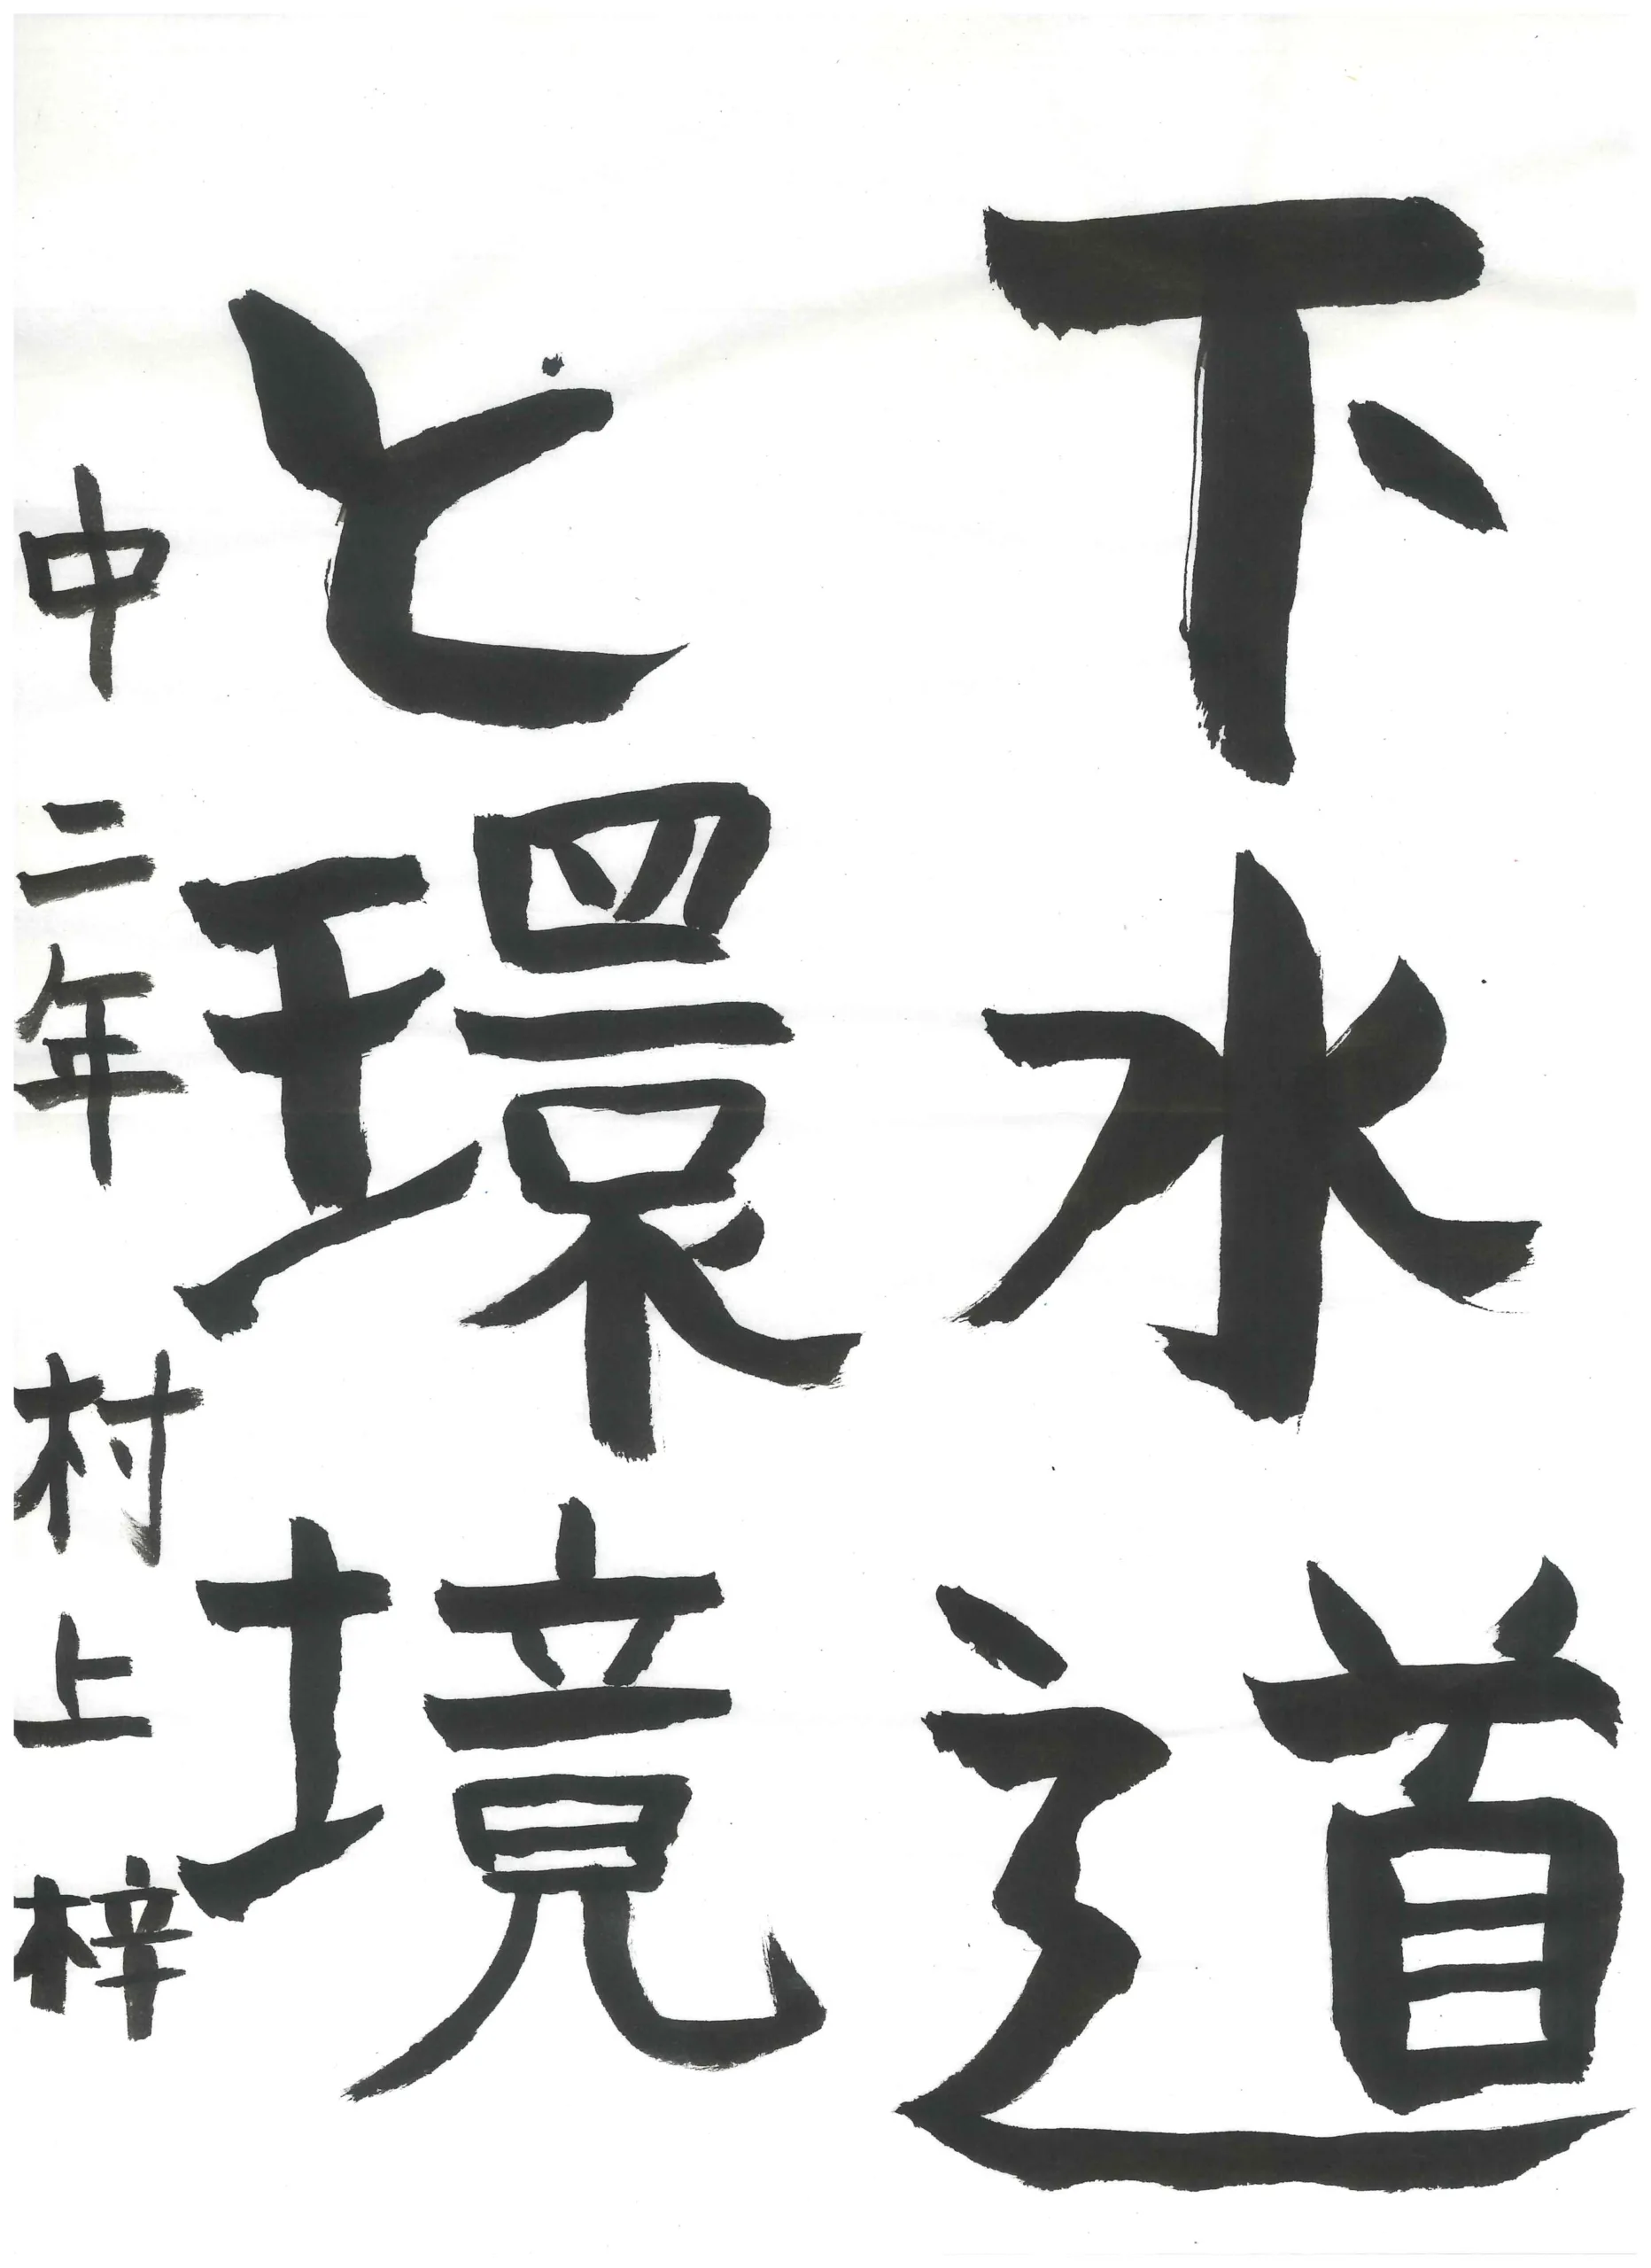 下水道
と環境
中二年 村上 梓